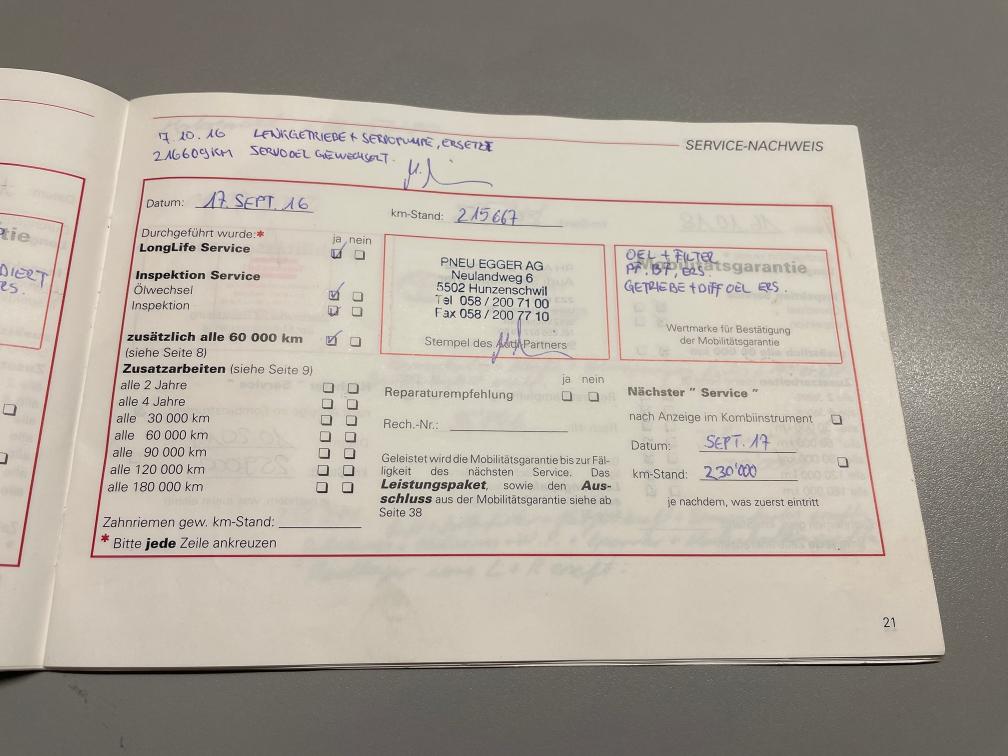 7.10.16 LENKGETRIEBE + SERVOPUMPE, ERSETZT
216609KM SERVOOEL GEWECHSELT.
SERVICE-NACHWEIS
Datum: 17. SEPT. 16
km-Stand: 215667
Durchgeführt wurde:*
ja nein
LongLife Service
Inspektion Service
Ölwechsel
Inspektion
zusätzlich alle 60 000 km
(siehe Seite 8)
Zusatzarbeiten (siehe Seite 9)
alle 2 Jahre
alle 4 Jahre
alle 30 000 km
alle 60 000 km
alle 90 000 km
alle 120 000 km
alle 180 000 km
Zahnriemen gew. km-Stand:
* Bitte jede Zeile ankreuzen
PNEU EGGER AG
Neulandweg 6
5502 Hunzenschwil
Tel 058 / 200 71 00
Fax 058 / 200 77 10
Stempel des Audi-Partners
ja nein
Reparaturempfehlung
Rech.-Nr.:
Geleistet wird die Mobilitätsgarantie bis zur Fäl-
ligkeit des nächsten Service. Das
Leistungspaket, sowie den Aus-
schluss aus der Mobilitätsgarantie siehe ab
Seite 38
OEL + FILTER
Mobilitätsgarantie
PF, BF, ERS.
GETRIEBE + DIFF OEL ERS.
Wertmarke für Bestätigung
der Mobilitätsgarantie
Nächster " Service "
nach Anzeige im Kombiinstrument
Datum: SEPT. 17
km-Stand: 230'000
je nachdem, was zuerst eintritt
21